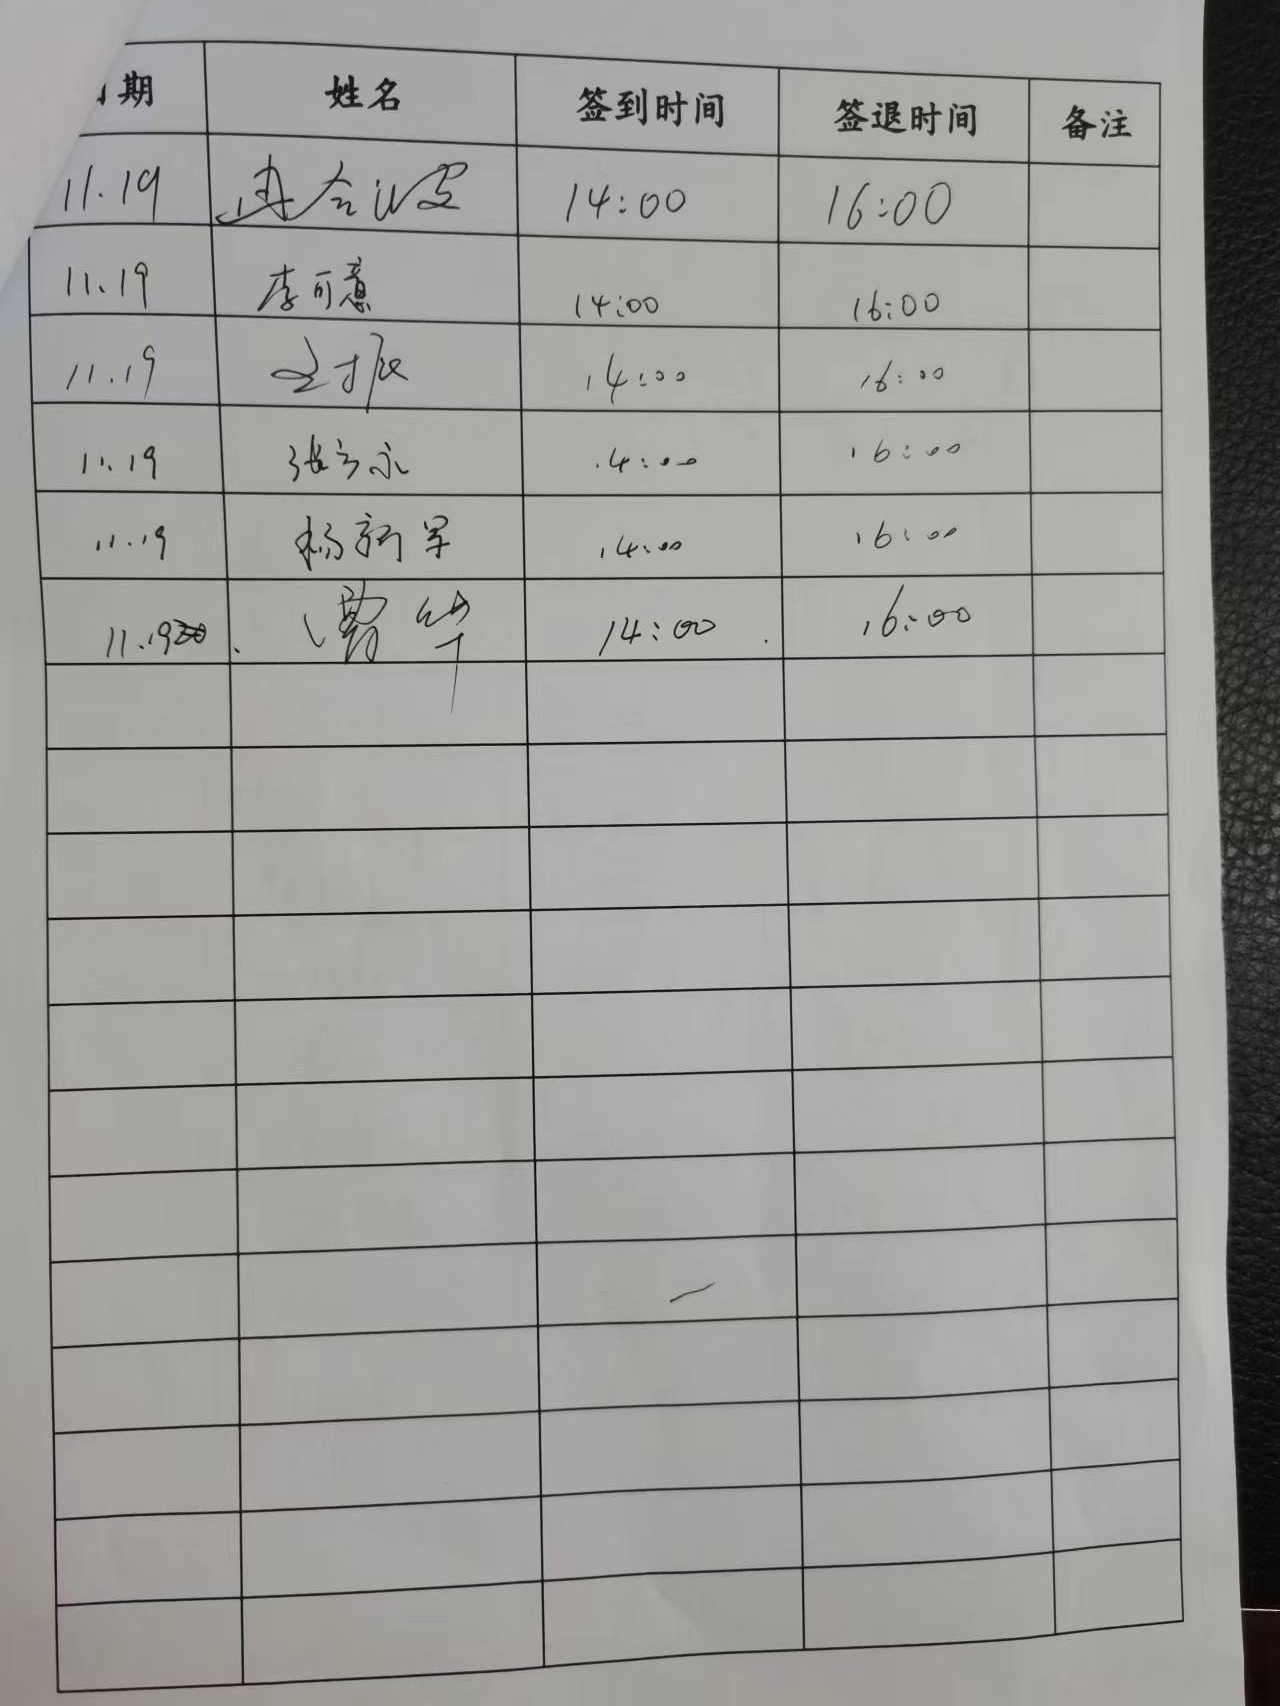 期 姓名 签到时间 签退时间 备注
11.19 14:00 16:00
11.19 李可意 14:00 16:00
11.19 14:00 16:00
11.19 14:00 16:00
11.19 杨新军 14:00 16:00
11.19 华 14:00 16:00